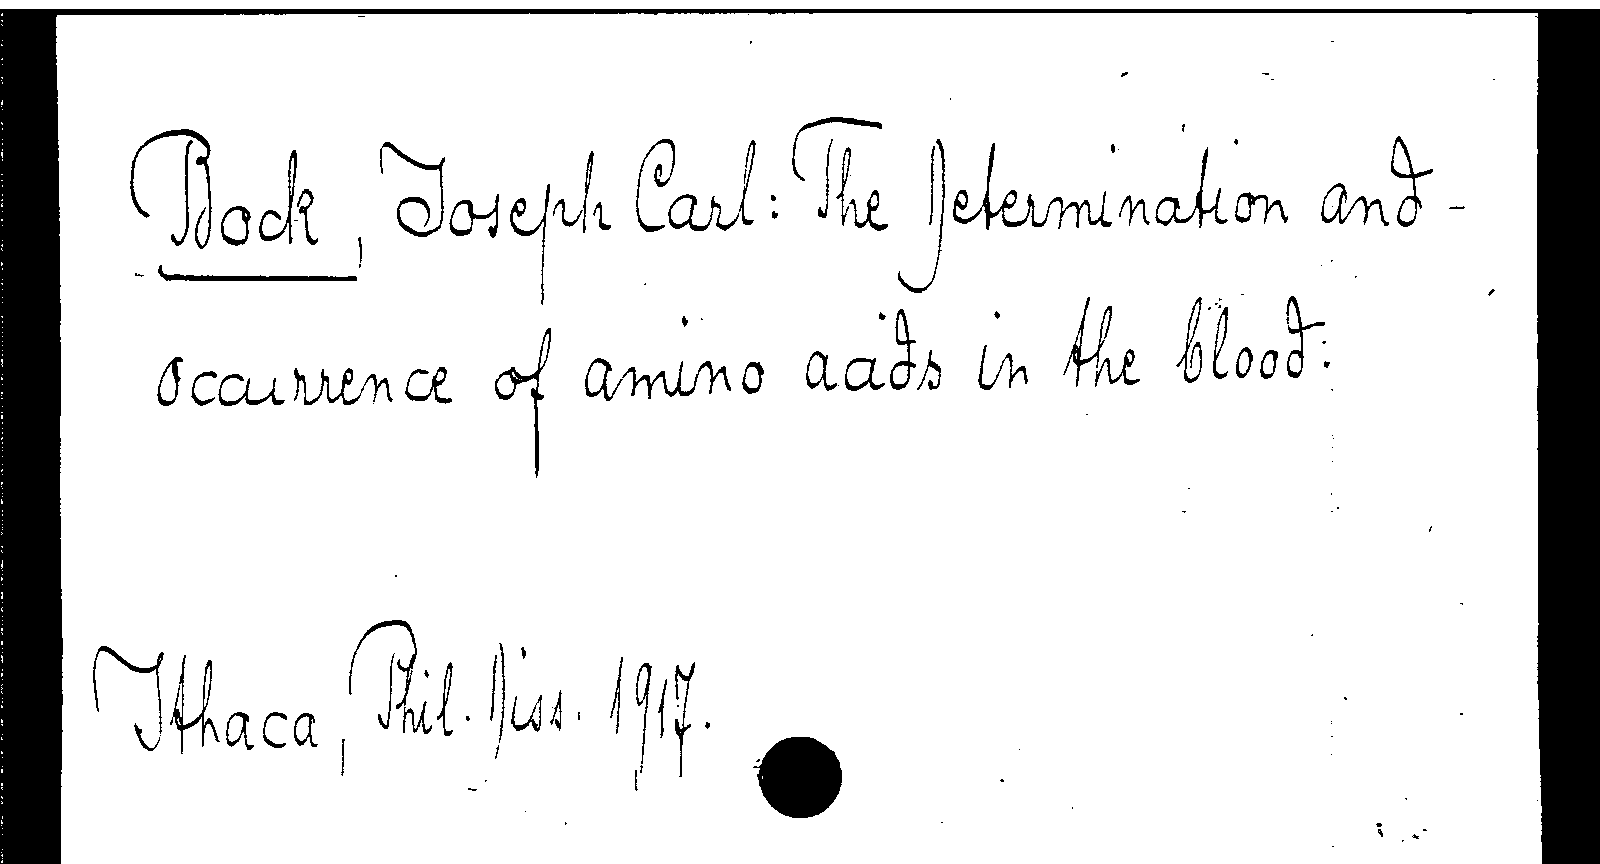 Bock, Joseph Carl: The Determination and
occurrence of amino acids in the blood.
Ithaca, Phil. Diss. 1917.